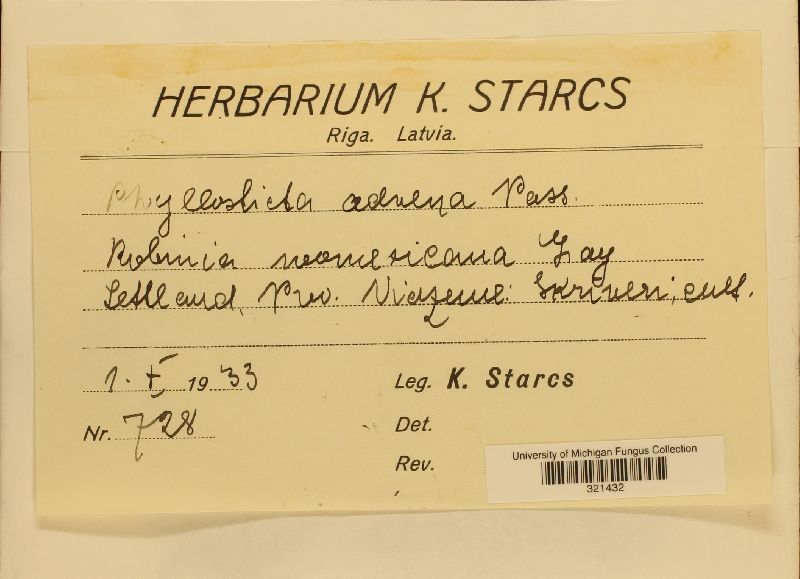 HERBARIUM K. STARCS
Riga. Latvia.
Phyllosticta advena Pass.
Robinia neomexicana Gay
Lettland, Prov. Vidzeme: Skriveri, cult.
1. X 1933
Leg. K. Starcs
Nr. 728
Det.
Rev.
University of Michigan Fungus Collection
321432